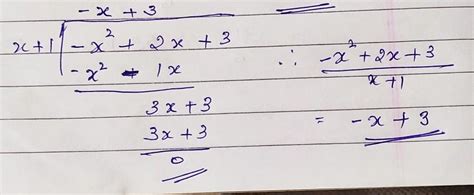 -x + 3
x+1 | -x² + 2x + 3
-x² - 1x
3x + 3
3x + 3
0
∴ -x² + 2x + 3 / x + 1
= -x + 3